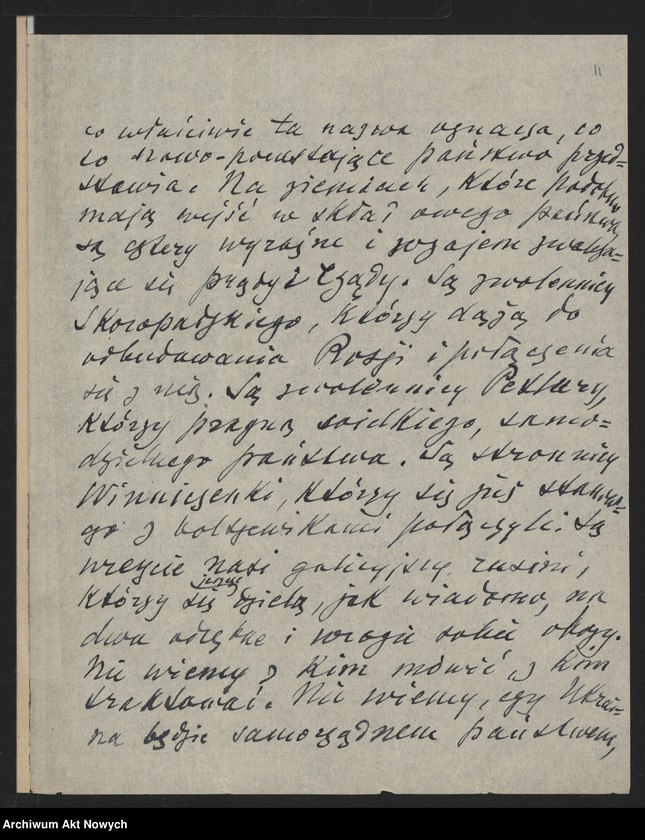 11
co właściwie ta nazwa oznacza, co
to nowo-powstające państwo przed=
stawia. Na ziemiach, które
mają wejść w skład owego państwa
są cztery wyraźne i zwalcza=
jące się prądy i rządy. Są zwolennicy
Skoropadskiego, którzy dążą do
odbudowania Rosji i połączenia
się z nią. Są zwolennicy Petlury,
którzy pragną wielkiego, samo=
dzielnego państwa. Są stronnicy
Winniczenki, którzy się już
go z bolszewikami połączyli. Są
wreszcie nasi galicyjscy rusini,
którzy się jeszcze dzielą, jak wiadomo, na
dwa odrębne i wrogie sobie obozy.
Nie wiemy z kim mówić, z kim
traktować. Nie wiemy, czy Ukrai=
na będzie samorządnem państwem,
Archiwum Akt Nowych